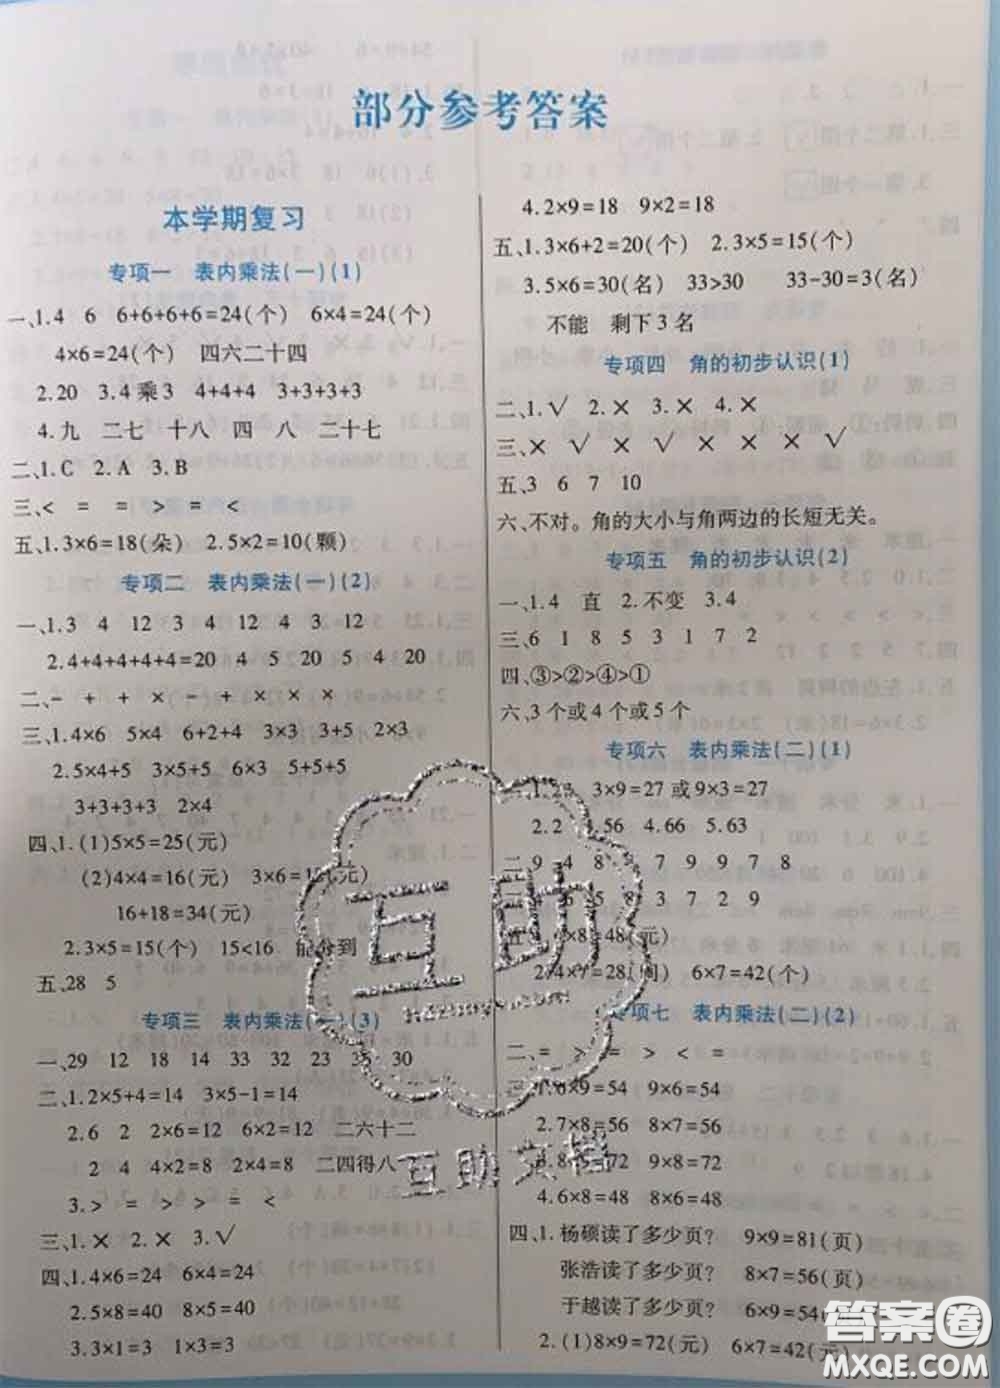 部分参考答案
本学期复习
专项一 表内乘法(一)(1)
一、1.4 6 6+6+6+6=24(个) 6×4=24(个)
4×6=24(个) 四六二十四
2.20 3.4 乘 3 4+4+4 3+3+3+3
4.九 二七 十八 四 八 二十七
二、1.C 2.A 3.B
三、< = = > = <
五、1.3×6=18(朵) 2.5×2=10(颗)
专项二 表内乘法(一)(2)
一、1.3 4 12 3 4 12 4 3 12
2.4+4+4+4+4=20 4 5 20 5 4 20
二、- + + × - + × × ×
三、1.4×6 5×2 6+2+4 3×5 2×3
2.5×4+5 3×5+5 6×3 5+5+5
3+3+3+3 2×4
四、1.(1)5×5=25(元)
(2)4×4=16(元) 3×6=18(元)
16+18=34(元)
2.3×5=15(个) 15<16 能分到
五、28 5
专项三 表内乘法(一)(3)
一、29 12 18 14 33 32 23 35 30
二、1.2×5+4=14 3×5-1=14
2.6 2 2×6=12 6×2=12 二六十二
2 4 4×2=8 2×4=8 二四得八
3.> = > > = <
三、1.× 2.× 3.√
四、1.4×6=24 6×4=24
2.5×8=40 8×5=40
3.3×1=3 1×3=3
4.2×9=18 9×2=18
五、1.3×6+2=20(个) 2.3×5=15(个)
3.5×6=30(名) 33>30 33-30=3(名)
不能 剩下 3 名
专项四 角的初步认识(1)
二、1.√ 2.× 3.× 4.×
三、× √ × √ × × × √
五、3 6 7 10
六、不对。角的大小与角两边的长短无关。
专项五 角的初步认识(2)
一、1.4 直 2.不变 3.4
三、6 1 8 5 3 1 7 2
四、③>②>④>①
六、3 个或 4 个或 5 个
专项六 表内乘法(二)(1)
一、1.27 3×9=27 或 9×3=27
2.2 .56 4.66 5.63
二、9 4 8 7 9 9 7 8
4 6 5 8 3 7 2 9
五、 ×8=48(元)
2.4×7=28(周) 6×7=42(个)
专项七 表内乘法(二)(2)
二、= > = > < =
三、1.6×9=54 9×6=54
2.7×8=56 8×7=56
3.8×9=72 9×8=72
4.6×8=48 8×6=48
四、1.杨硕读了多少页? 9×9=81(页)
张浩读了多少页? 8×7=56(页)
于越读了多少页? 6×9=54
2.(1)8×9=72(元) 6×7=42(元)
互助
互助文档
答案圈
MXQE.COM